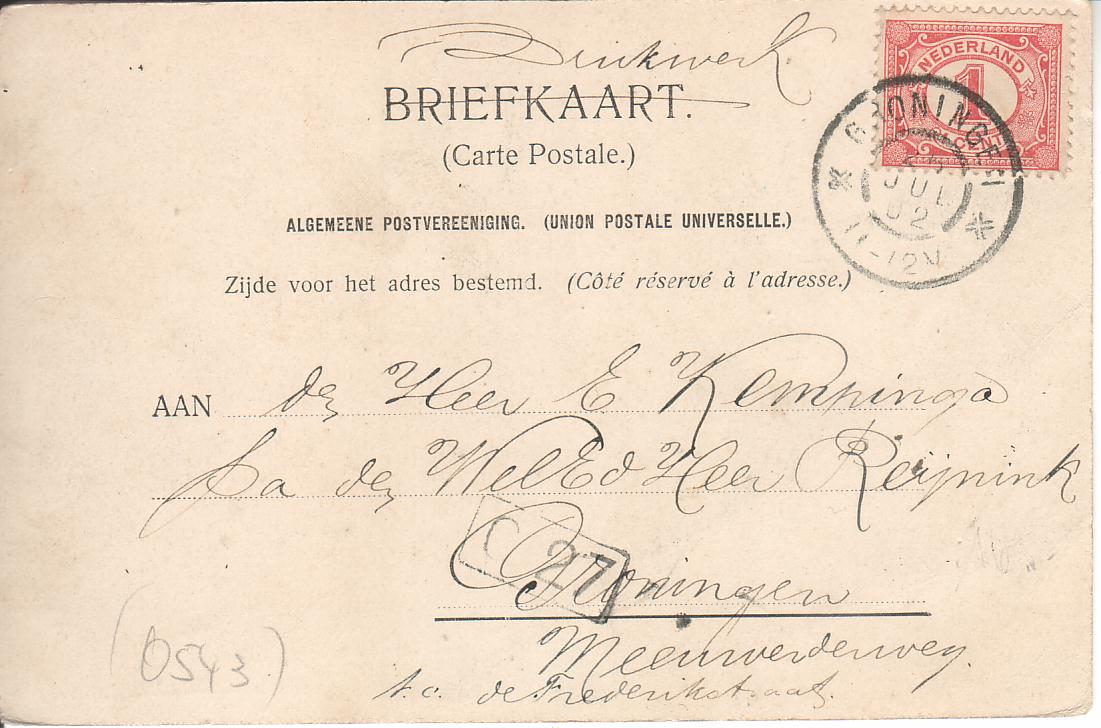 Drukwerk
BRIEFKAART.
(Carte Postale.)
ALGEMEENE POSTVEREENIGING. (UNION POSTALE UNIVERSELLE.)
Zijde voor het adres bestemd. (Côté réservé à l'adresse.)
NEDERLAND
1
CENT
GRONINGEN
JUL
02
11-12V
AAN den Heer E Kempinga
pa den WelEd Heer Reijnink
Groningen
C 27
Meeuwerderweg
t.o. de Frederikstraat.
(0543)